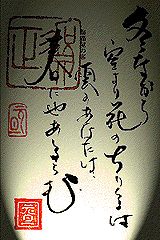 冬なから
空より花のちりくるは
雲のあなたは
春にやあるらむ